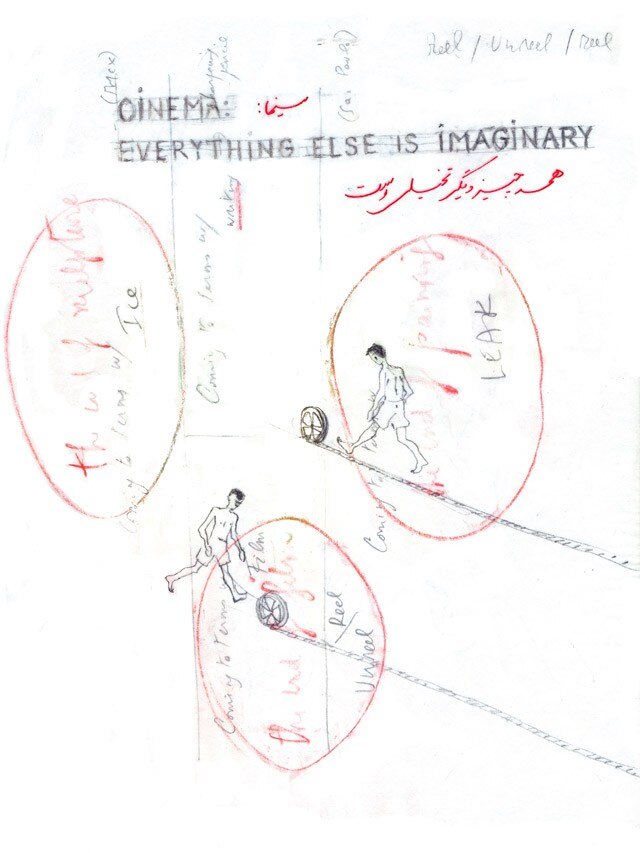 Reel / Unreel / Reel
(Sao Paulo)
CINEMA:
سینما:
EVERYTHING ELSE IS IMAGINARY
همه چیز دیگر تخیلی است
the end of sculpture
Coming to terms w/ Ice
Coming to terms w/ writing
the end of painting
LEAK
Coming to terms
Coming to terms
Film
the end of film
Reel / Unreel